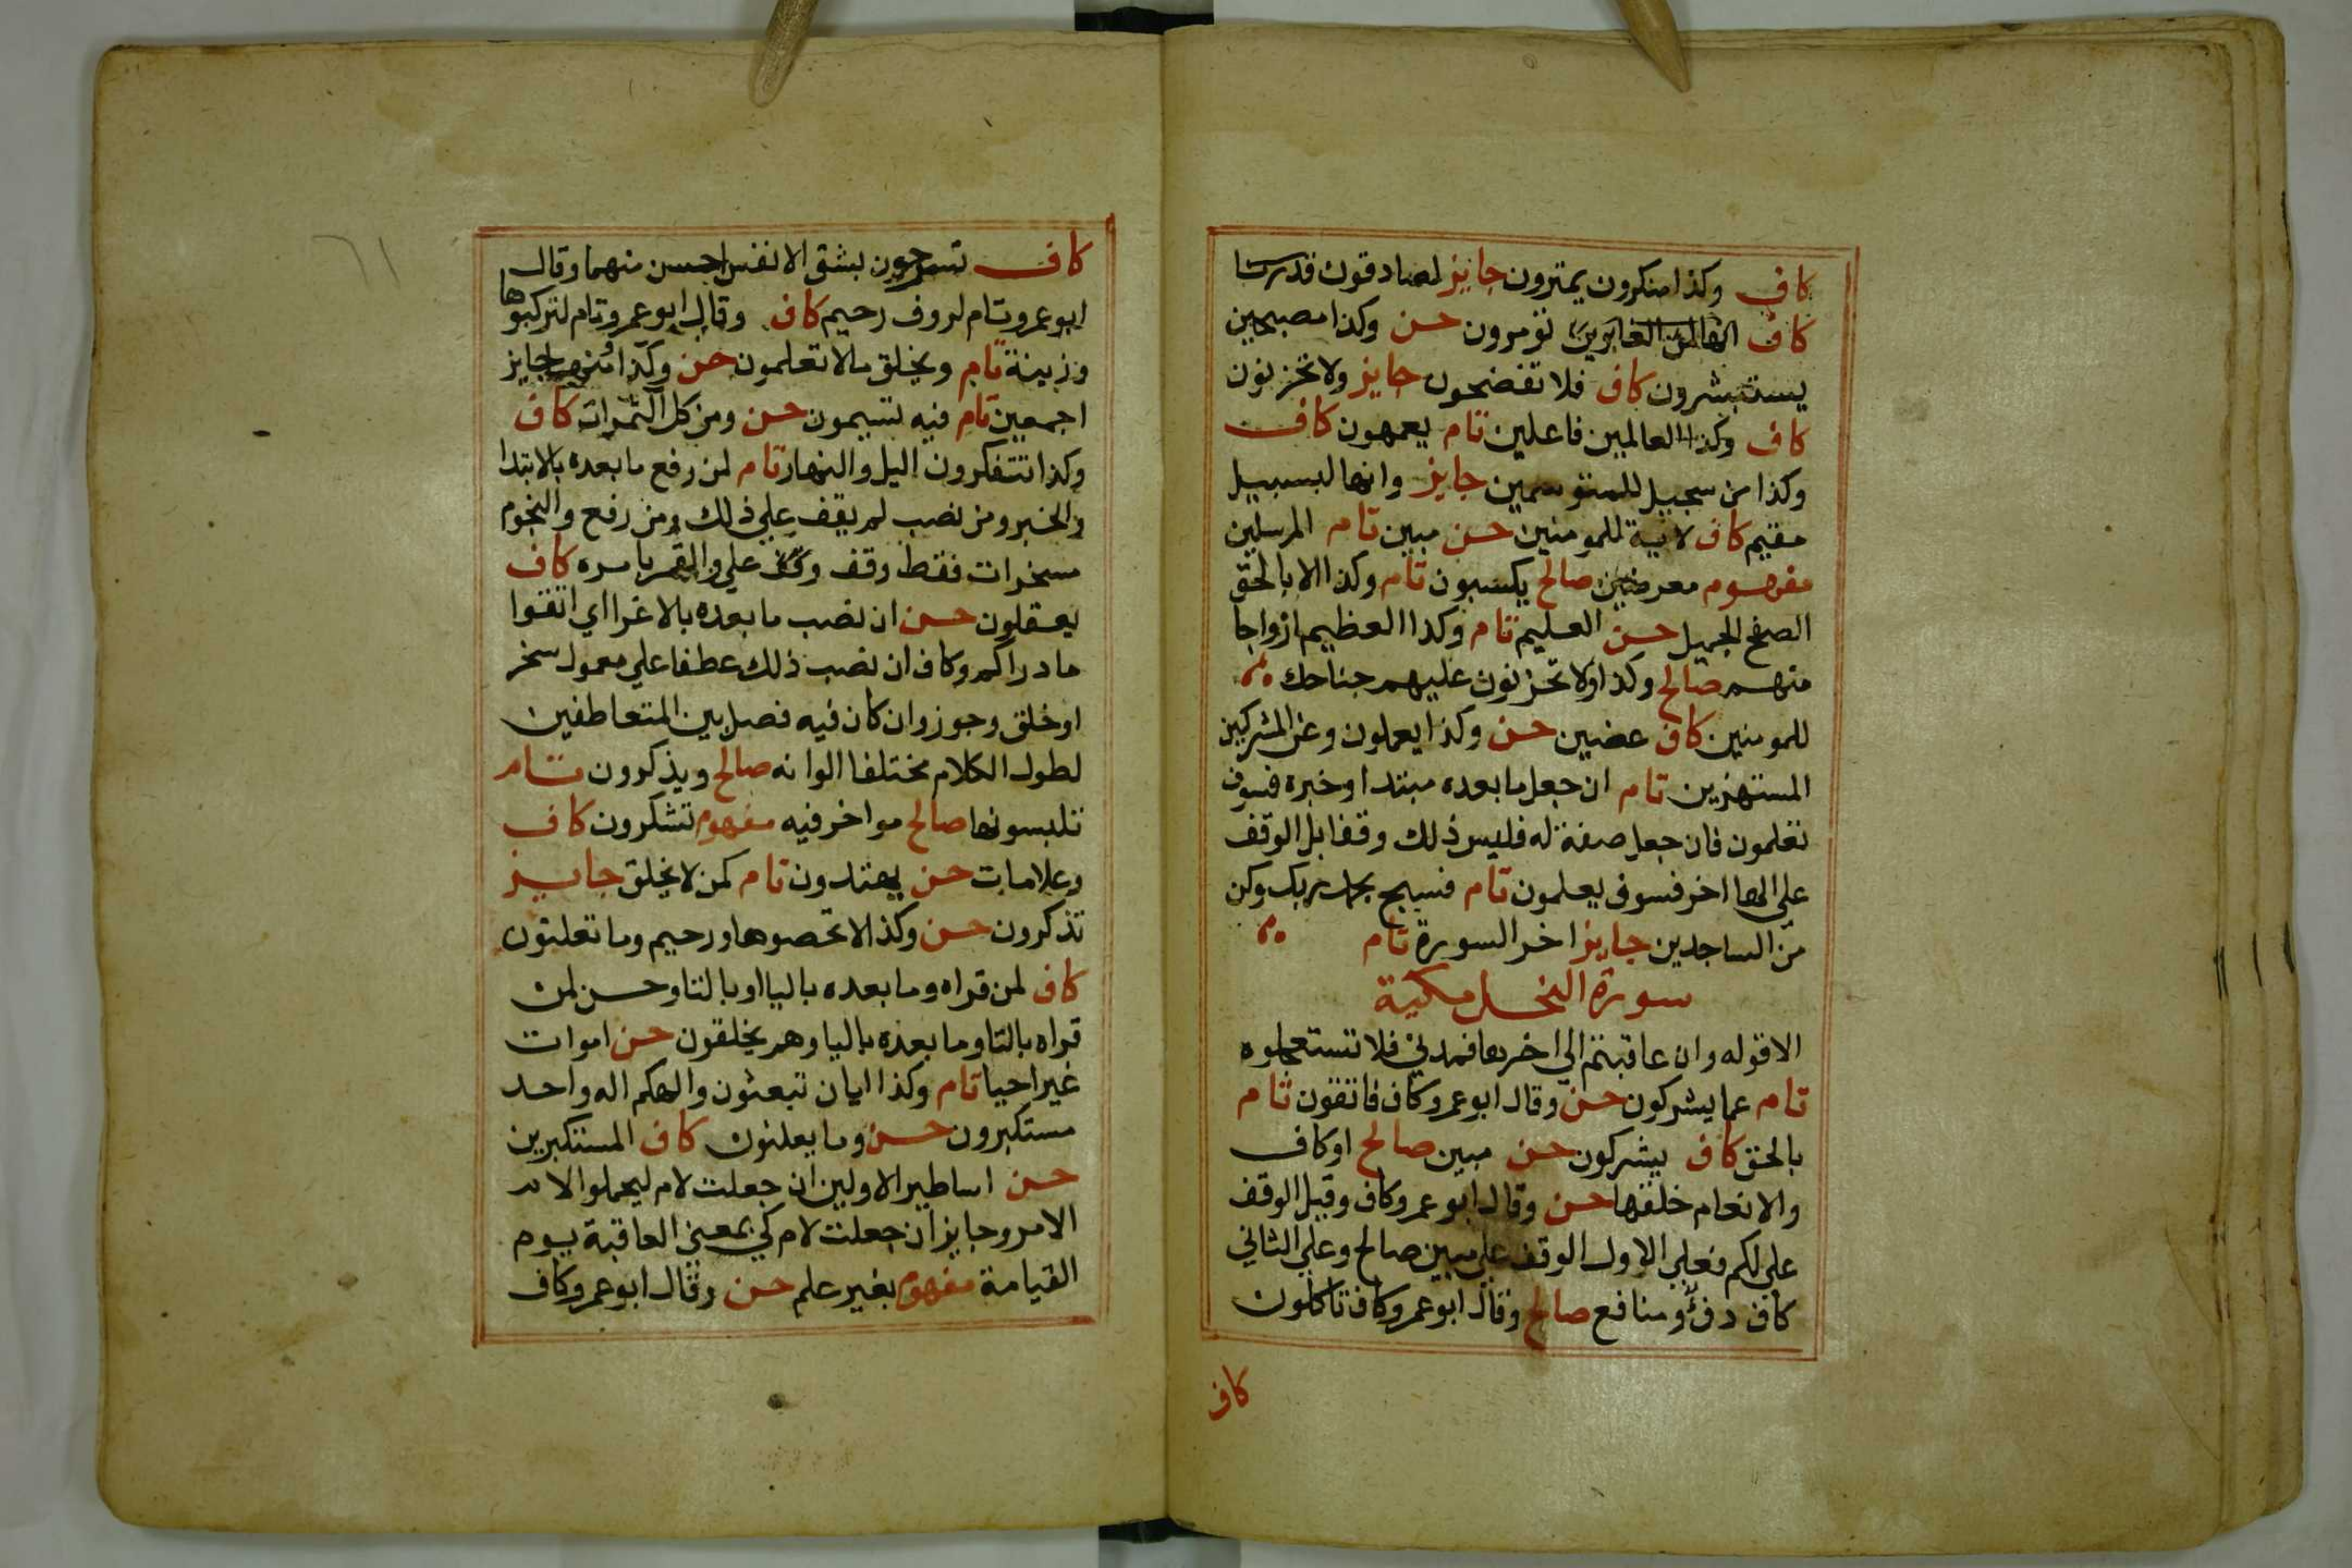 كاف وكذا منكرون يمترون جايز لصادقون قدرنا
كاف انها لمن الغابرين تومرون حسن وكذا مصبحين
يستبشرون كاف فلا تفضحون جايز ولا تخزون
كاف وكذا العالمين فاعلين تام يعمهون كاف
وكذا من سجيل للمتوسمين جايز وانها لبسبيل
مقيم كاف لاية للمومنين حسن مبين تام المرسلين
مفهوم معرضين صالح يكسبون تام وكذا الا بالحق
الصفح الجميل حسن العليم تام وكذا العظيم ازواجا
منهم صالح وكذا ولا تحزنون عليهم جناحك
للمومنين كاف عضين حسن وكذا يعملون وعن المشركين
المستهزين تام ان جعل ما بعده مبتدا وخبره فسوف
تعلمون فان جعل صفة له فليس ذلك وقفا بل الوقف
على الها اخر فسوف يعلمون تام فسبح بحمد ربك وكن
من الساجدين جايز اخر السورة تام
سورة النخل مكية
الا قوله وان عاقبتم الي اخرها فمدني فلا تستعجلوه
تام عما يشركون حسن وقال ابو عمرو كاف فاتقون تام
بالحق كاف يشركون حسن مبين صالح او كاف
والانعام خلقها حسن وقال ابو عمرو كاف وقيل الوقف
علي لكم فعلي الاول الوقف علي مبين صالح وعلي الثاني
كاف دفؤ ومنافع صالح وقال ابو عمرو كاف تاكلون
كاف
٦١
كاف تسرحون بشق الانفس احسن منهما وقال
ابو عمرو تام لروف رحيم كاف وقال ابو عمرو تام لتركبوها
وزينة تام ويخلق ما لا تعلمون حسن وكذا ومنها جايز
اجمعين تام فيه تسيمون حسن ومن كل الثمرات كاف
وكذا تتفكرون اليل والنهار تام لمن رفع ما بعده بالابتدا
والخبر ومن نصب لم يقف علي ذلك ومن رفع والنجوم
مسخرات فقط وقف علي والقمر بامره كاف
يعقلون حسن ان نصب ما بعده بالاغرا اي اتقوا
ما درا لكم وكاف ان نصب ذلك عطفا علي معمول سخر
او خلق وجوز وان كان فيه فصل بين المتعاطفين
لطول الكلام مختلفا الوانه صالح ويذكرون تام
تلبسونها صالح مواخر فيه مفهوم تشكرون كاف
وعلامات حسن يهتدون تام كمن لا يخلق جايز
تذكرون حسن وكذا لا تحصوها ورحيم وما تعلنون
كاف لمن قراه وما بعده باليا او بالتا وحسن لمن
قراه بالتا وما بعده باليا وهم يخلقون حسن اموات
غير احيا تام وكذا ايان تبعثون والهكم اله واحد
مستكبرون حسن وما يعلنون كاف المستكبرين
حسن اساطير الاولين ان جعلت لام ليحملوا لام
الامر وجايز ان جعلت لام كي بمعني العاقبة يوم
القيامة مفهوم بغير علم حسن وقال ابو عمرو كاف